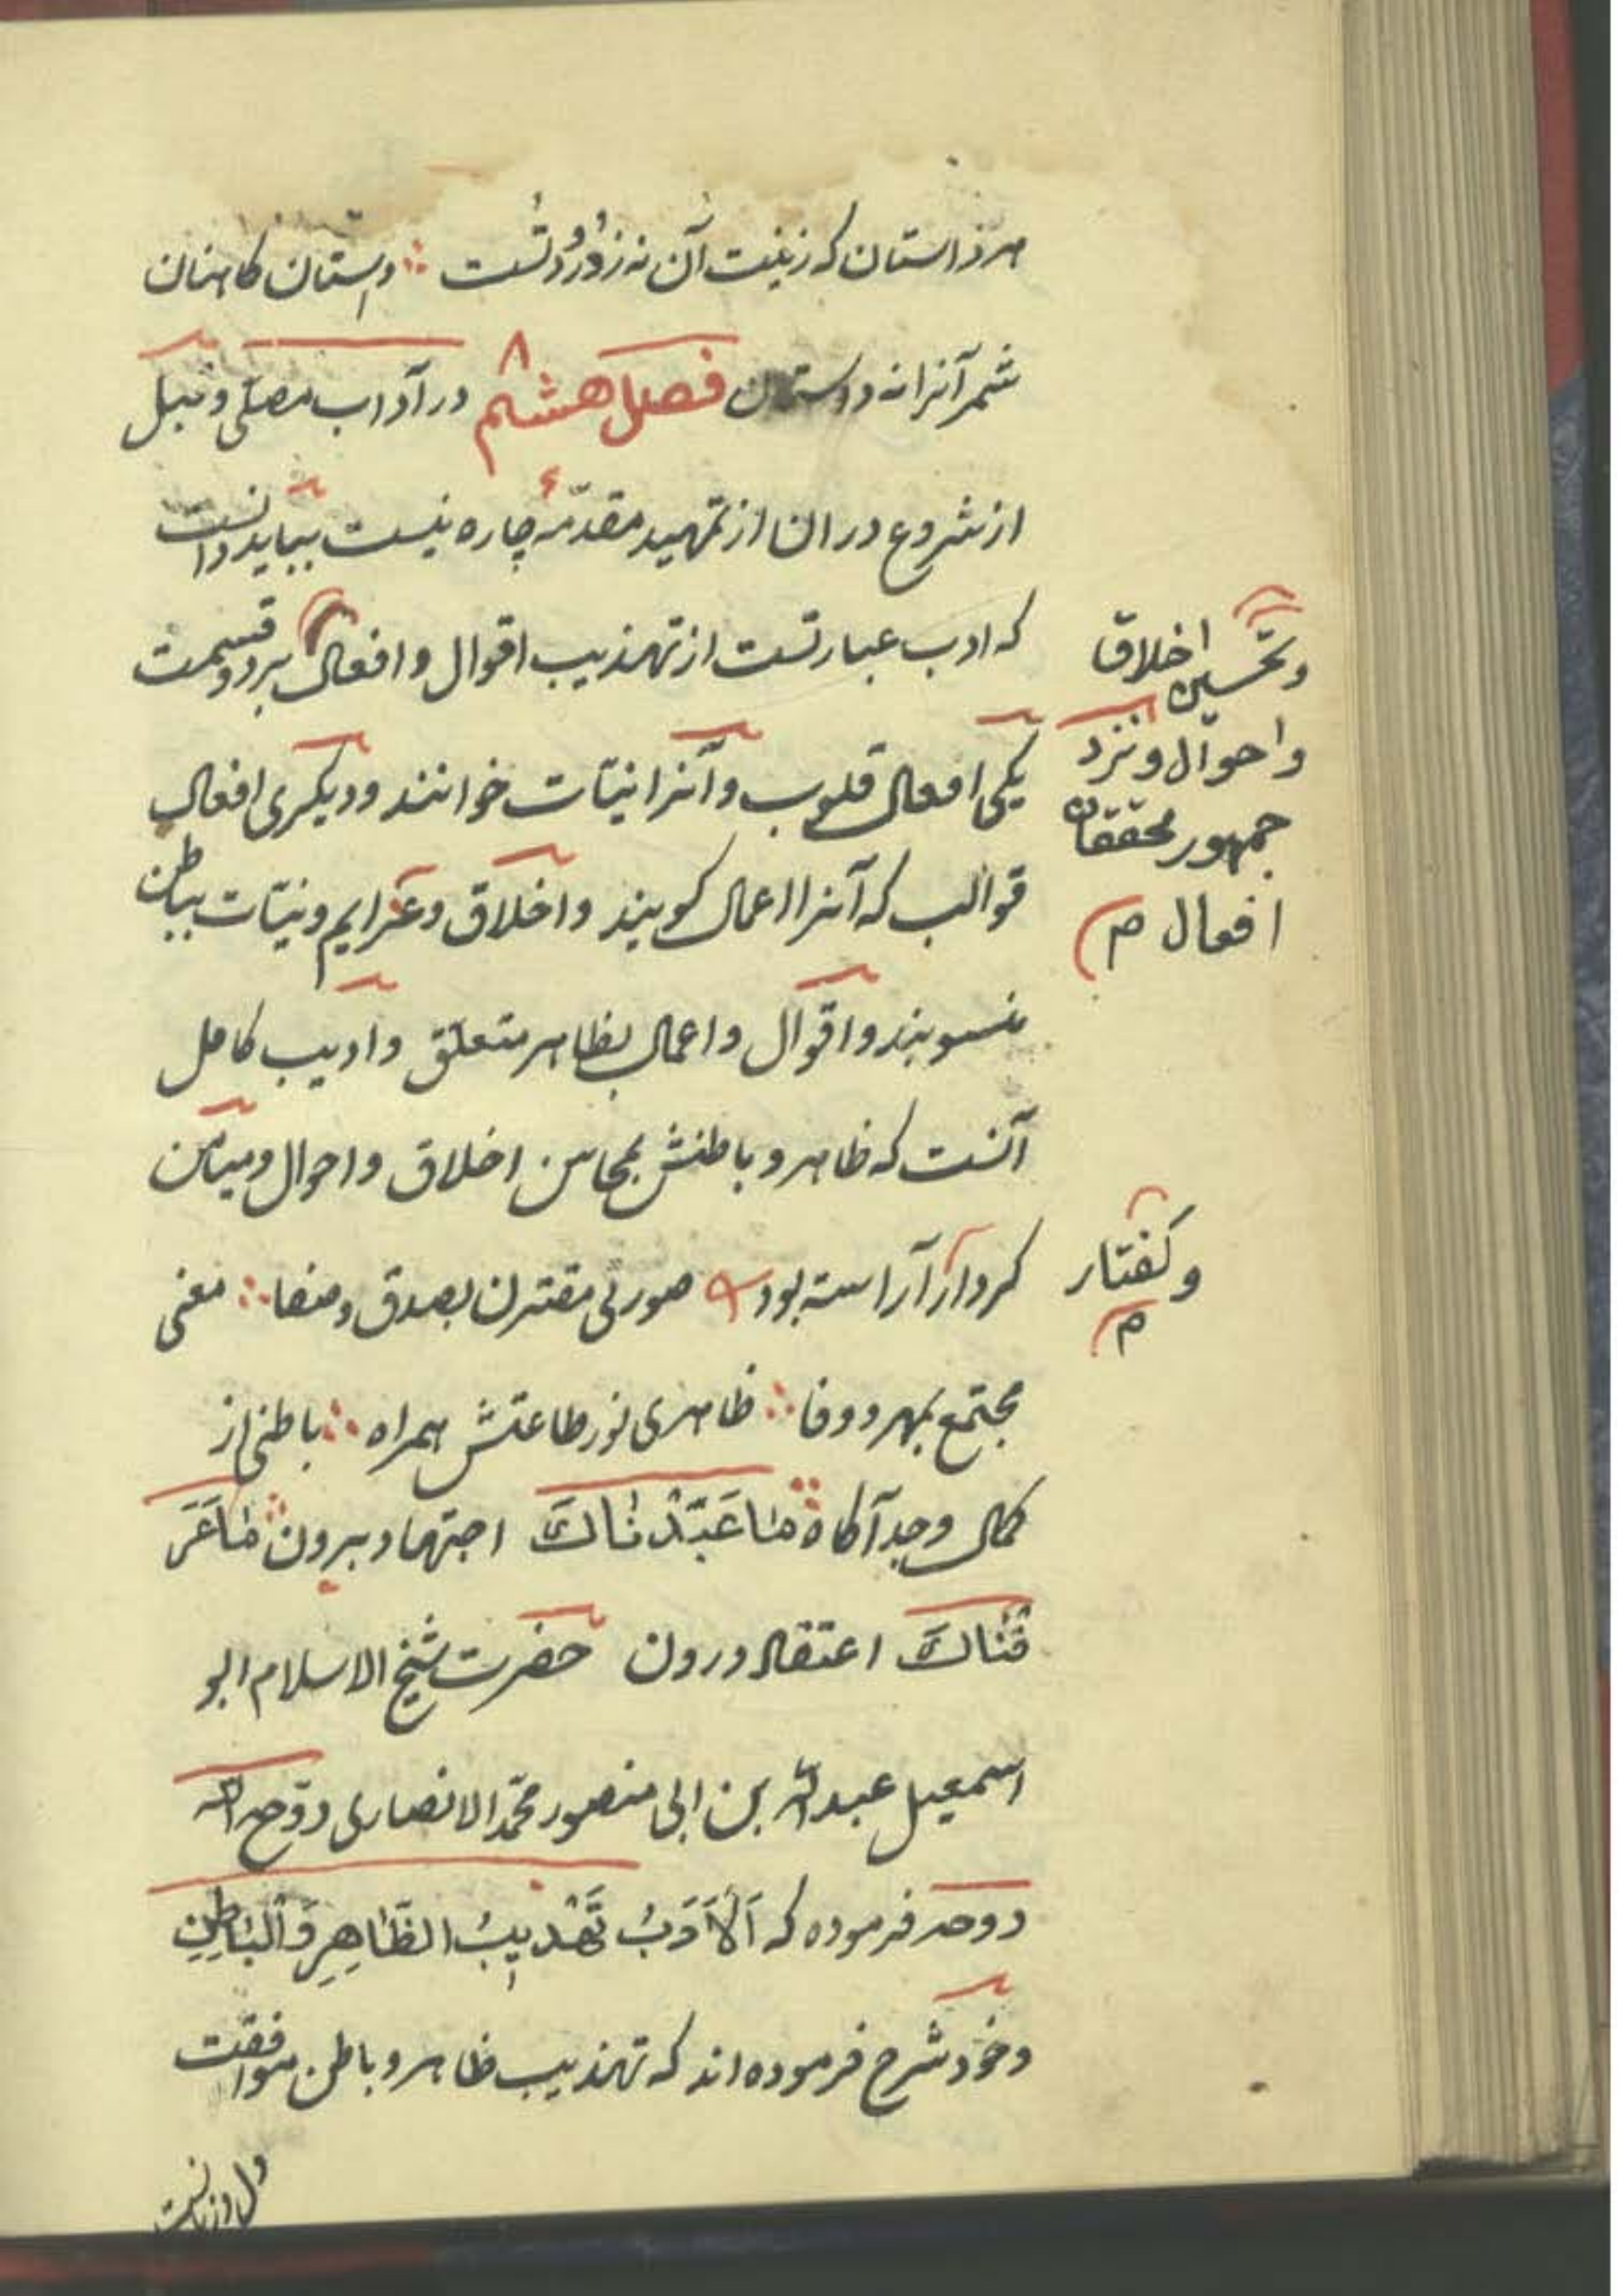 هر داستان که زینت آن نه زدر و دشت ؞ دبستان کاهنان
شمر آنرا نه دوستان فصل هشتم ۸ در آداب مصلی و قبل
از شروع در ان از تمهید مقدمهٔ چاره نیست بباید دانست
که ادب عبارتست از تهذیب اقوال و افعال بر دو قسمت
وتحسین اخلاق
واحوال و نزد
جمهور محققان
افعال م
یکی افعال قلوب و آنرا نیّات خوانند و دیگری افعال
قوالب که آنرا اعمال کویند و اخلاق و عزایم و نیّات بباطن
منسوبند و اقوال و اعمال بظاهر متعلق و ادیب کامل
آنست که ظاهر و باطنش بمحاسن اخلاق و احوال و میامن
کردار آراسته بود صورتی مقترن بصدق و صفا ؞ معنی
وکفتار
م
مجتمع بمهر و وفا ؞ ظاهری نور طاعتش همراه ؞ باطنی از
کمال وجد آکاه ؞ مٰا عَبَدْنٰاكَ اجتهاد برون ؞ مٰا عَرَ
فْنٰاكَ اعتقاد درون حضرت شیخ الاسلام ابو
اسمعیل عبدالله بن ابی منصور محمّد الانصاری روّح الله
روحه فرموده که اَلْاَدَبُ تَهْذيبُ الظّٰاهِرِ وَالْبٰاطِنِ
وخود شرح فرموده اند که تهذیب ظاهر و باطن موافقت
دل و زبانست